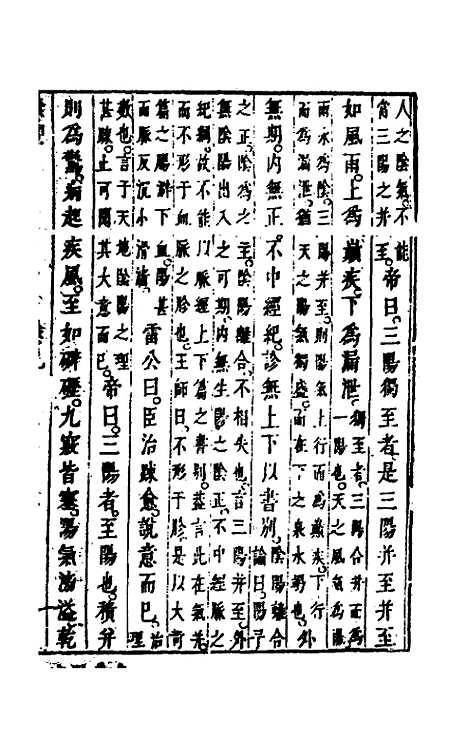 人之陰氣不能
當三陽之并至
帝曰。三陽獨至者。是三陽并至。并至
如風雨。上為巔疾。下為漏泄。
獨至者。三陽合并而為
一陽也。天之風氣為陽。
雨水為陰。三陽并至。則陽氣上行而為巔疾。下行
而為漏泄。猶天之陽氣獨盛。而在下之泉水躬也。
外無期。內無正。不中經紀。診無上下以書別。
陰陽離合
論曰。陽予
之正。陰為之主。陰陽離合。不相失也。言三陽并至。外
無陰陽出入之可期。內無生陽之陰正。不中經脈之
紀綱。故不能以脈經上下篇之書別。蓋言此在氣并
而不形于血脈之診也。王師曰。不形于胗。是以大奇
篇之陽辨下血。陽甚
而脈反沉小滑濇
雷公曰。臣治疎愈。說意而已。
治
理
數也。言于天地陰陽之理
甚疎。止可聞其大意而已。
帝曰。三陽者。至陽也。積并
則為驚。病起疾風。至如礔礰。九竅皆塞。陽氣滂溢。乾